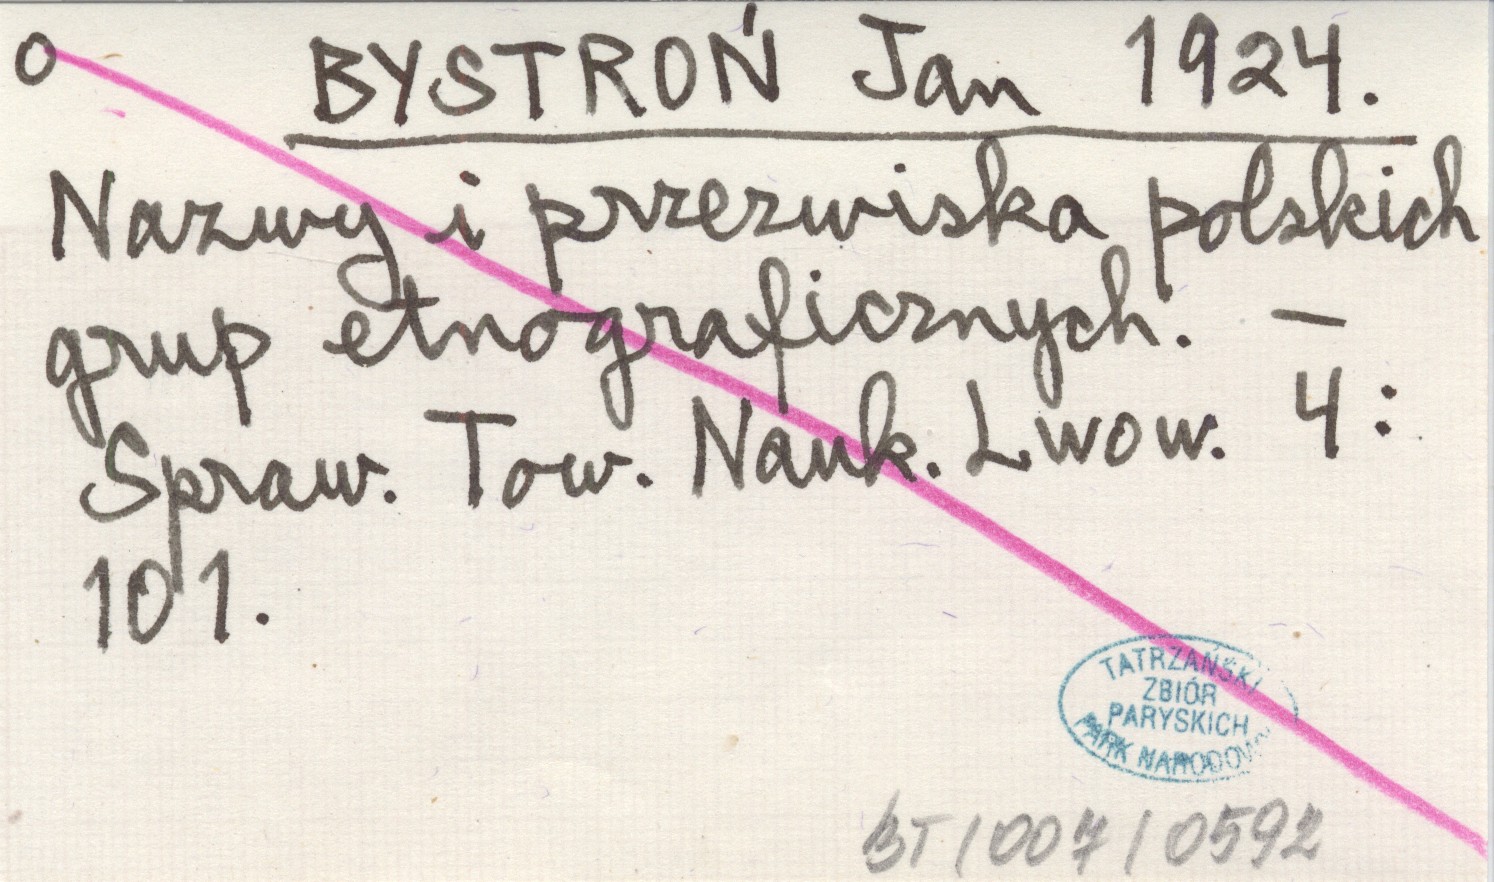 o BYSTROŃ Jan 1924.
Nazwy i przezwiska polskich
grup etnograficznych. –
Spraw. Tow. Nauk. Lwow. 4:
101.
TATRZAŃSKI
ZBIÓR
PARYSKICH
PARK NARODOWY
BT/007/0592